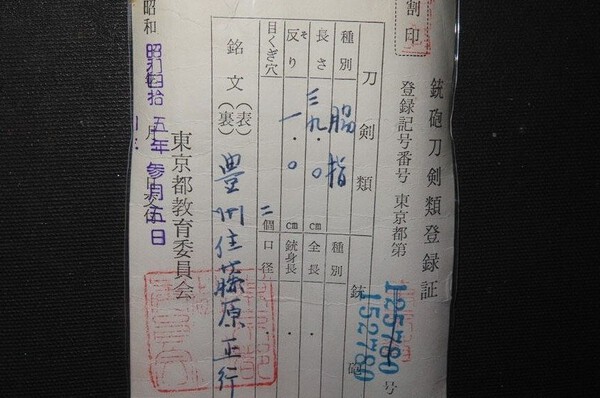 割印
銃砲刀剣類登録証
登録記号番号 東京都第 125780 号
152780
刀剣類 銃砲
種別 脇指 種別
長さ 三九.〇 cm 全長 .
反り そ 一.〇 cm 銃身長 .
目くぎ穴 二個 口径 .
銘文 (表) 豊州住藤原正行
(裏)
東京都教育委員会
昭和 昭和四拾五年参月五日